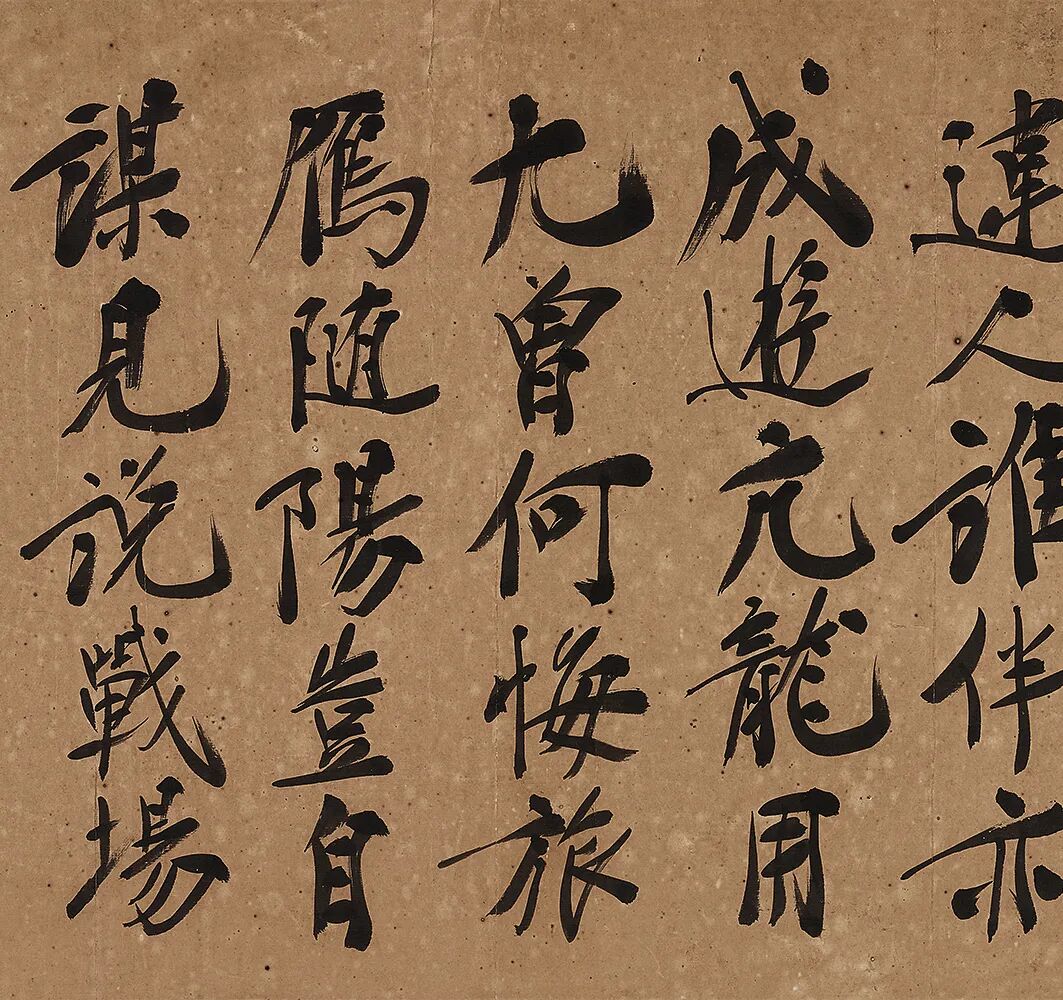 違人誰伴亦
成遊亢龍用
九曾何悔旅
鴈随陽豈自
謀見説戰場